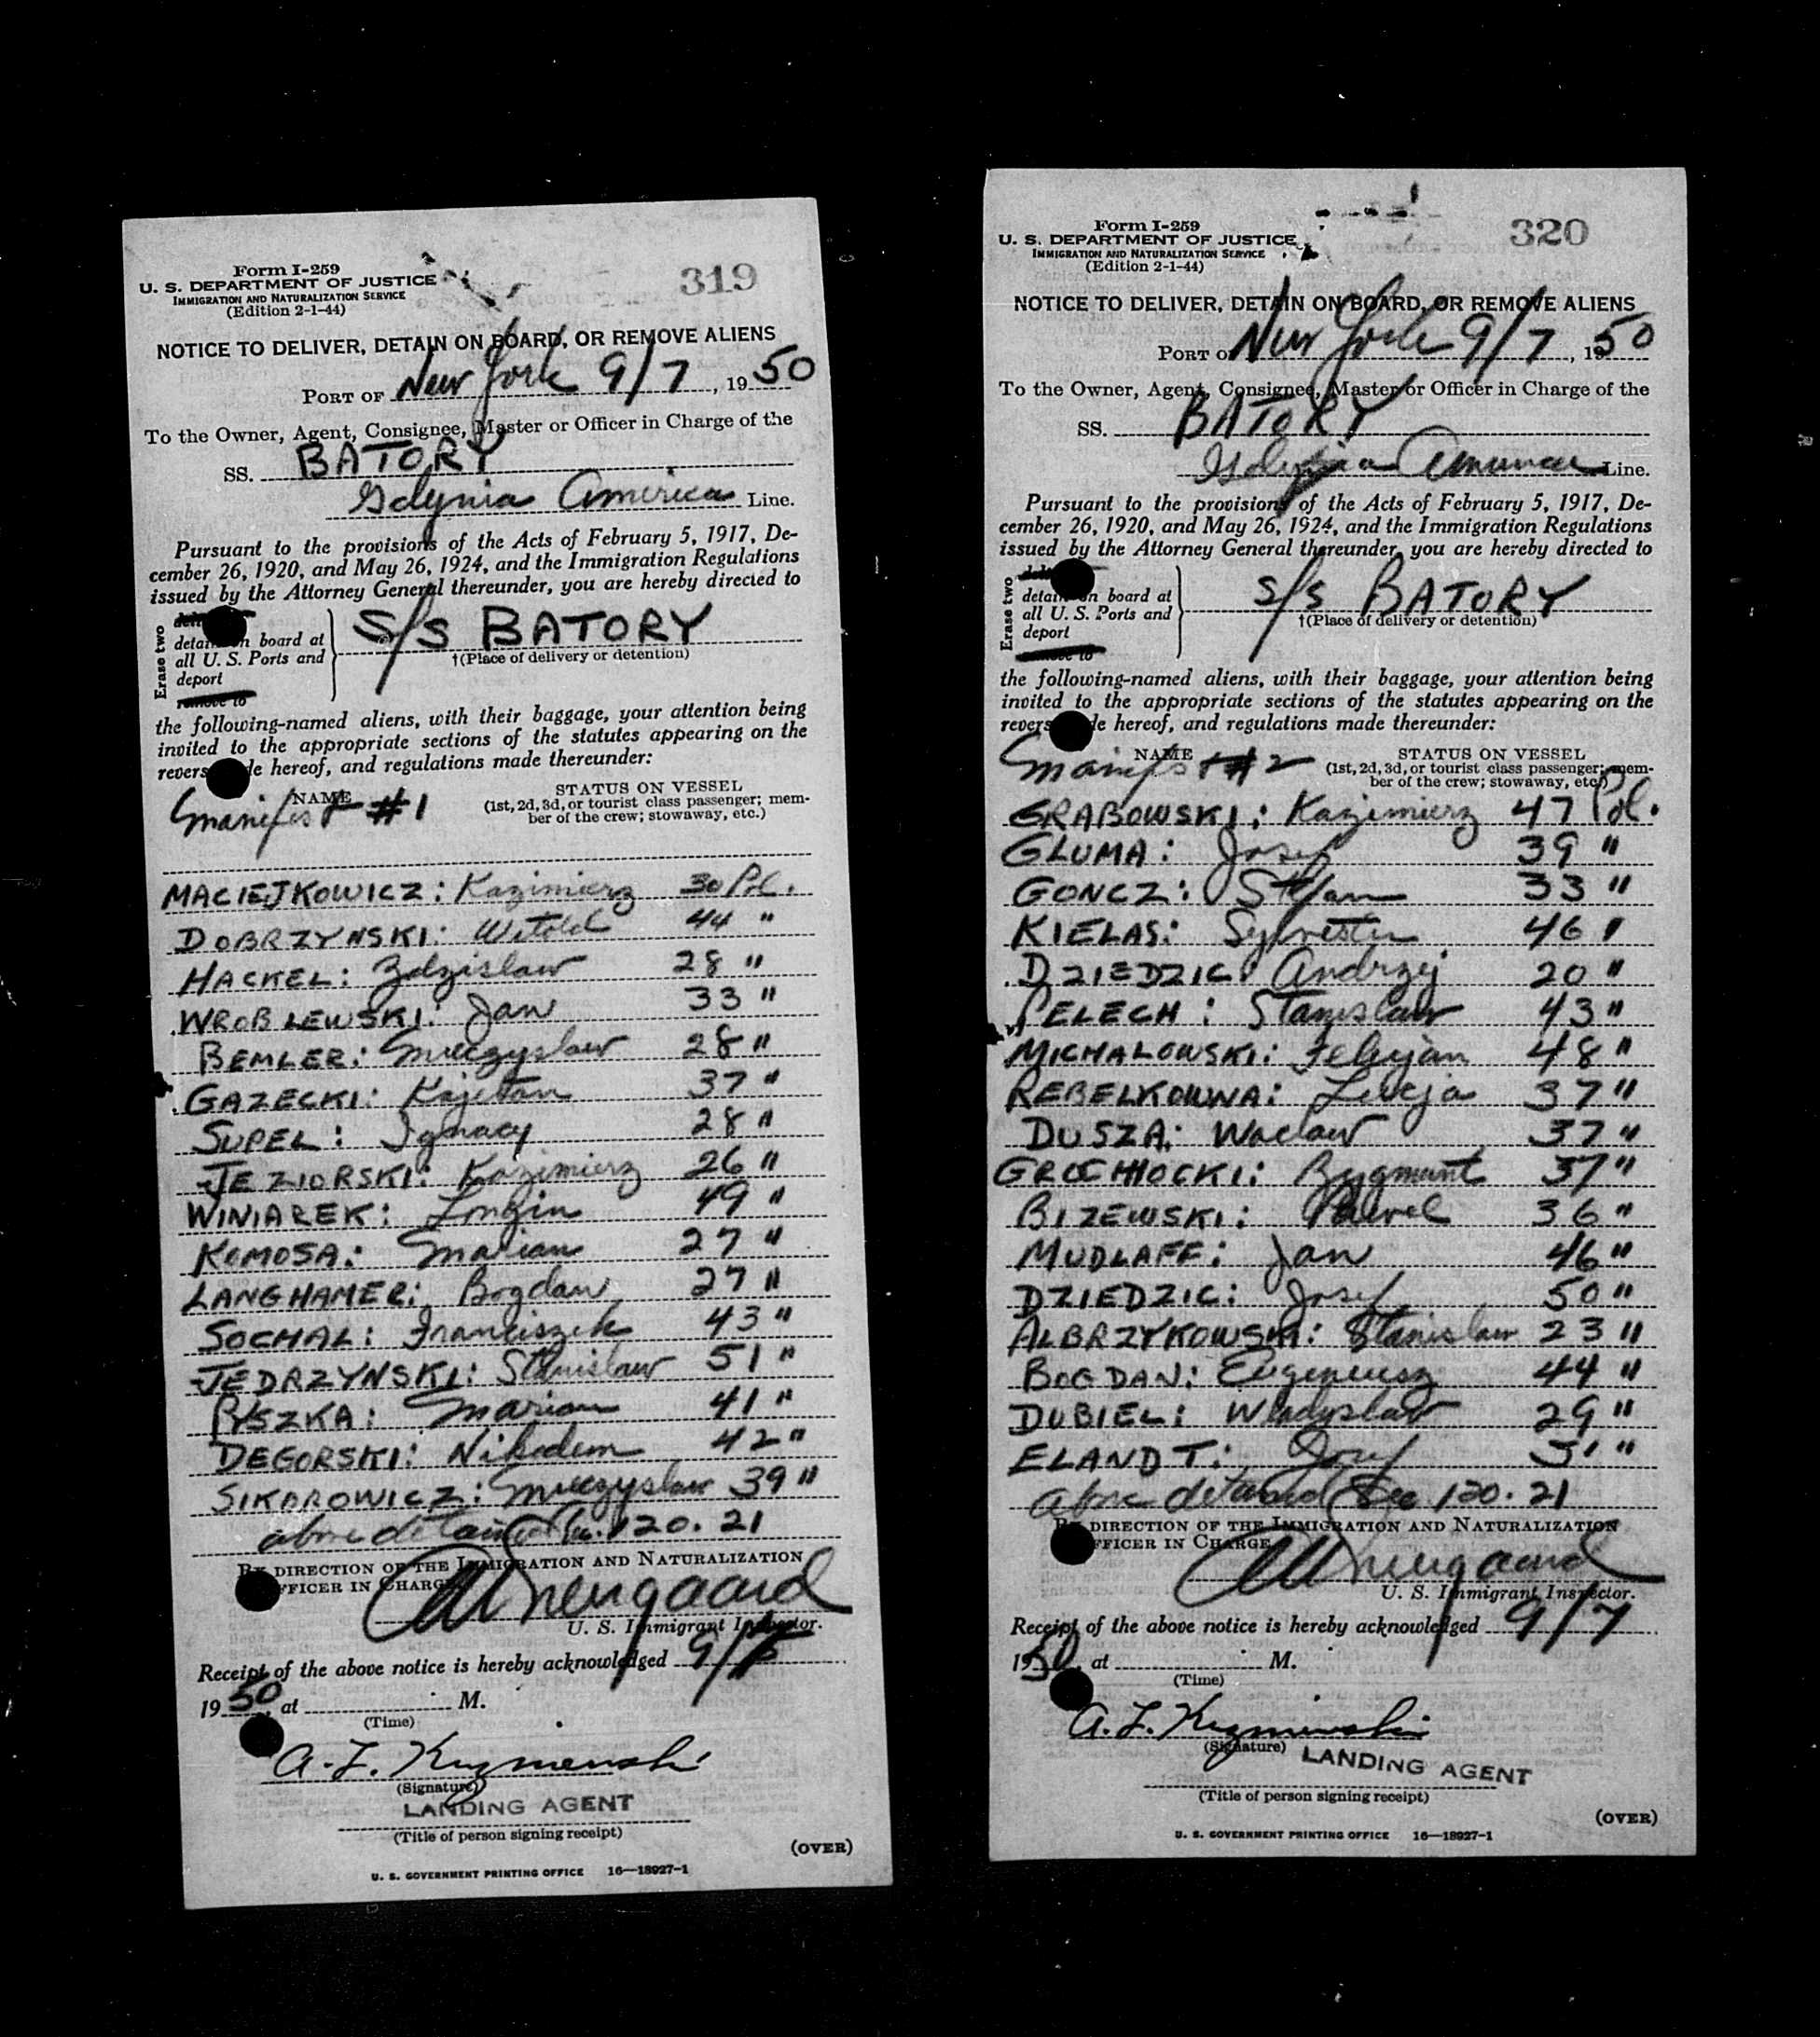 Form I-259
U. S. DEPARTMENT OF JUSTICE
IMMIGRATION AND NATURALIZATION SERVICE
(Edition 2-1-44)
319
NOTICE TO DELIVER, DETAIN ON BOARD, OR REMOVE ALIENS
PORT OF New York 9/7, 1950
To the Owner, Agent, Consignee, Master or Officer in Charge of the
SS. BATORY
Gdynia America Line.
Pursuant to the provisions of the Acts of February 5, 1917, De-
cember 26, 1920, and May 26, 1924, and the Immigration Regulations
issued by the Attorney General thereunder, you are hereby directed to
Erase two
detain on board at
all U. S. Ports and
deport
remove to
S/S BATORY
†(Place of delivery or detention)
the following-named aliens, with their baggage, your attention being
invited to the appropriate sections of the statutes appearing on the
reverse side hereof, and regulations made thereunder:
NAME
Manifest #1
STATUS ON VESSEL
(1st, 2d, 3d, or tourist class passenger; mem-
ber of the crew; stowaway, etc.)
MACIEJKOWICZ: Kazimierz 30 Pol.
DOBRZYNSKI: Witold 44 "
HACKEL: Zdzislaw 28 "
WROBLEWSKI: Jan 33 "
BEMLER: Mieczyslaw 28 "
GAZECKI: Kajetan 37 "
SUPEL: Ignacy 28 "
JEZIORSKI: Kazimierz 26 "
WINIAREK: Longin 49 "
KOMOSA: Marian 27 "
LANGHAMER: Bogdan 27 "
SOCHAL: Franciszek 43 "
JEDRZYNSKI: Stanislaw 51 "
PYSZKA: Marian 41 "
DEGORSKI: Nikodem 42 "
SIKOROWICZ: Mieczyslaw 39 "
above detained Sec. 120.21
BY DIRECTION OF THE IMMIGRATION AND NATURALIZATION
OFFICER IN CHARGE
U. S. Immigrant Inspector.
Receipt of the above notice is hereby acknowledged 9/7
1950, at M.
(Time)
A. L.
(Signature)
LANDING AGENT
(Title of person signing receipt)
(OVER)
U. S. GOVERNMENT PRINTING OFFICE 16—18927-1
Form I-259
U. S. DEPARTMENT OF JUSTICE
IMMIGRATION AND NATURALIZATION SERVICE
(Edition 2-1-44)
320
NOTICE TO DELIVER, DETAIN ON BOARD, OR REMOVE ALIENS
PORT OF New York 9/7, 1950
To the Owner, Agent, Consignee, Master or Officer in Charge of the
SS. BATORY
Gdynia America Line.
Pursuant to the provisions of the Acts of February 5, 1917, De-
cember 26, 1920, and May 26, 1924, and the Immigration Regulations
issued by the Attorney General thereunder, you are hereby directed to
Erase two
detain on board at
all U. S. Ports and
deport
remove to
S/S BATORY
†(Place of delivery or detention)
the following-named aliens, with their baggage, your attention being
invited to the appropriate sections of the statutes appearing on the
reverse side hereof, and regulations made thereunder:
NAME
Manifest #2
STATUS ON VESSEL
(1st, 2d, 3d, or tourist class passenger; mem-
ber of the crew; stowaway, etc.)
GRABOWSKI: Kazimierz 47 Pol.
GLUMA: Josef 39 "
GONCZ: Stefan 33 "
KIELAS: Sylvester 46 "
DZIEDZIC: Andrzej 20 "
PELECH: Stanislaw 43 "
MICHALOWSKI: Felicjan 48 "
REBELKOWNA: Lucja 37 "
DUSZA: Waclaw 37 "
GROCHHOCKI: Zygmunt 37 "
BIZEWSKI: Pawel 36 "
MUDLAFF: Jan 46 "
DZIEDZIC: Josef 50 "
ALBRZYKOWSKI: Stanislaw 23 "
BOGDAN: Eugeniusz 44 "
DUBIEL: Wladyslaw 29 "
ELANDT: Josef 51 "
above detained Sec 120.21
BY DIRECTION OF THE IMMIGRATION AND NATURALIZATION
OFFICER IN CHARGE
U. S. Immigrant Inspector.
Receipt of the above notice is hereby acknowledged 9/7
1950, at M.
(Time)
A. L.
(Signature)
LANDING AGENT
(Title of person signing receipt)
(OVER)
U. S. GOVERNMENT PRINTING OFFICE 16—18927-1